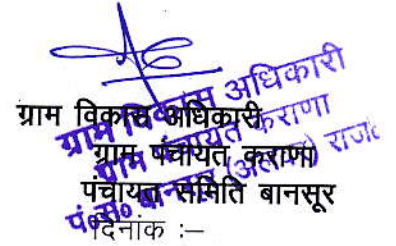 ग्राम विकास अधिकारी
ग्राम पंचायत कराणा
पंचायत समिति बानसूर
दिनांक :–
ग्राम विकास अधिकारी
ग्राम पंचायत कराणा
पं०स० बानसूर (अलवर) राज०